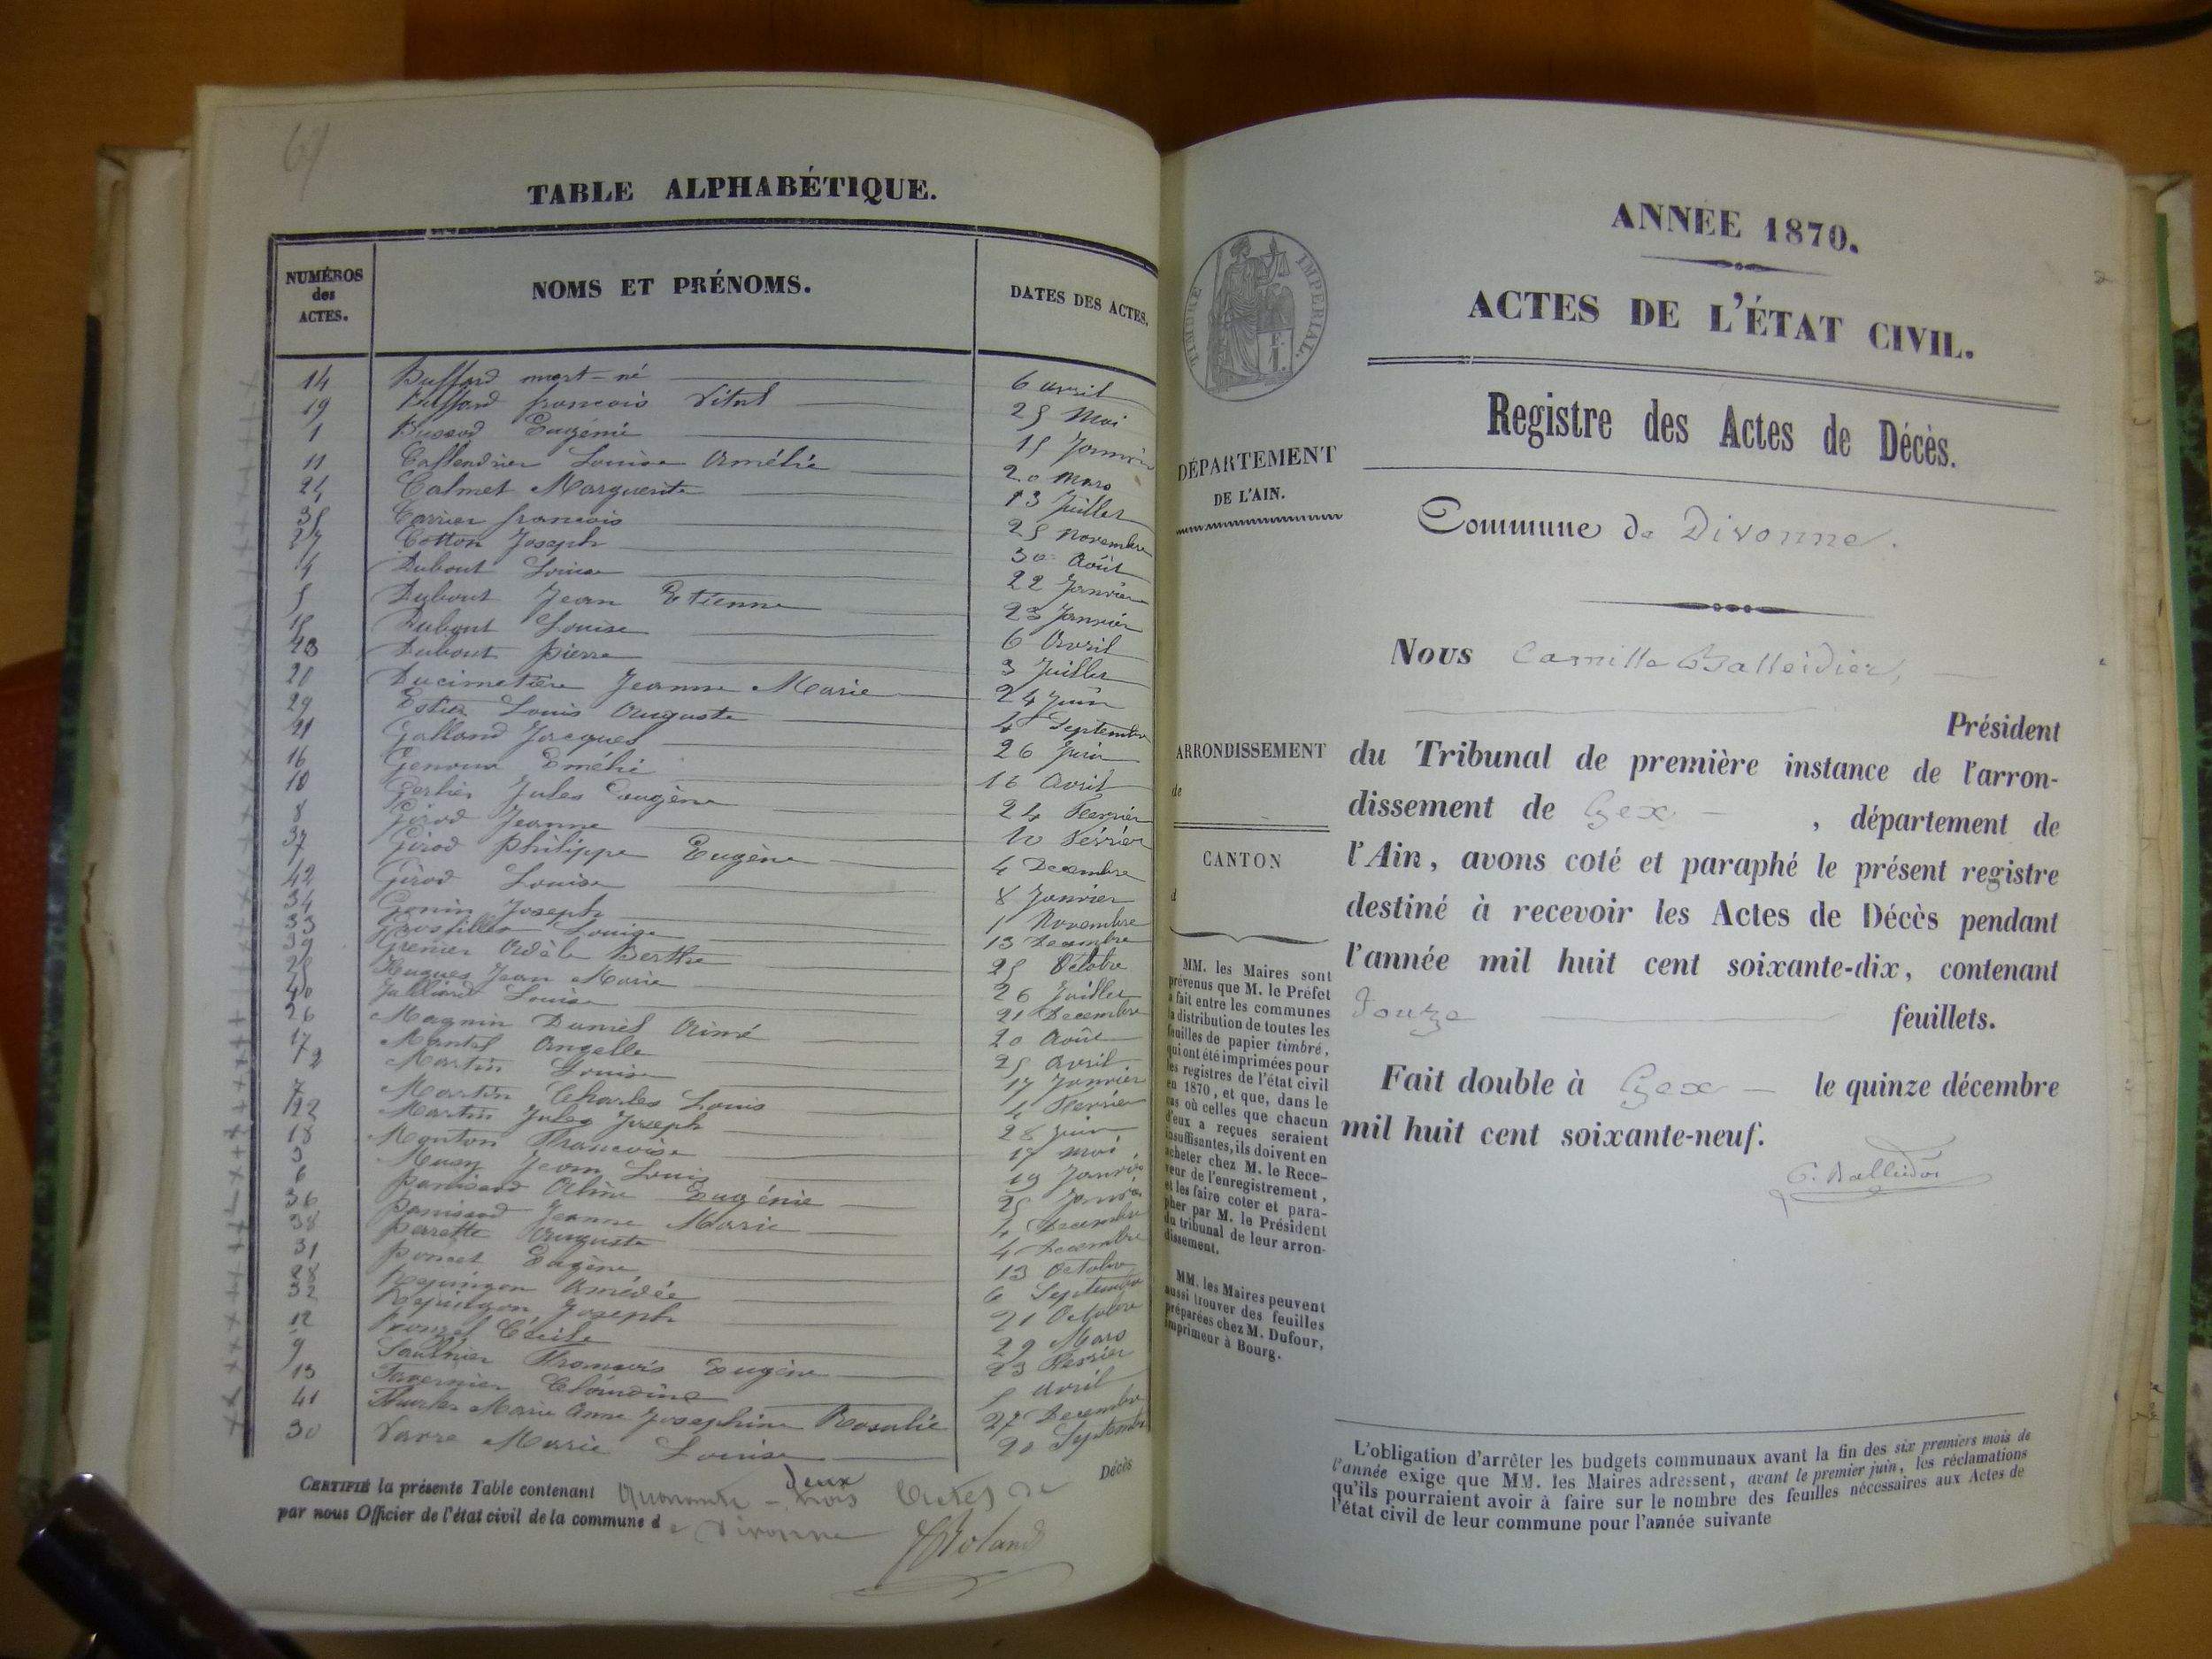 67
TABLE ALPHABÉTIQUE.
NUMÉROS des ACTES. NOMS ET PRÉNOMS. DATES DES ACTES.
14 Buffard mort-né 6 avril
19 Buffard françois Vital 25 Mai
1 Eugénie 15 Janvier
11 Louise Amélie 20 Mars
24 Calmet Marguerite 13 Juillet
35 Carrier françois 25 Novembre
27 Cotton Joseph 30 Août
4 Dubout Louise 22 Janvier
5 Dubout Jean Etienne 23 Janvier
15 Dubout Louise 6 Avril
23 Dubout pierre 3 Juillet
20 Ducimetière Jeanne Marie 24 Juin
29 Estier Louis Auguste Septembre
21 Galland Jacques 26 Juin
16 Genoux 16 Avril
10 Gerlier Jules Eugène 24 Fevrier
8 Girod Jeanne 10 Février
37 Girod philippe Eugène 4 Decembre
Girod Louise 8 Janvier
34 Gonin Joseph 1 Novembre
Louise 13 Decembre
33 Grenier Adèle Berthe 25 Octobre
25 Hugues Jean Marie 26 Juillet
40 Julliard Louise 21 Decembre
26 Magnin Daniel Aimé 20 Août
17 Mantel Angelle 25 Avril
Martin Louise 17 Janvier
7 Martin Charles Louis 4 Fevrier
22 Martin Jules Joseph 28 Juin
18 Monton Françoise 17 Mai
3 Musy Jean Louis 19 Janvier
6 panissod Aline Eugénie 25 Janvier
36 panissod Jeanne Marie 4 Decembre
38 perrette Auguste 4 Decembre
31 poncet Eugène 13 Octobre
28 Rejuingon Amédée 6 Septembre
32 Rejuingon Joseph 21 Octobre
12 Cécile 29 Mars
9 Saulnier François Eugène 23 Fevrier
13 Tavernier Claudine 5 Avril
41 Marie Anne Josephine Rosalie 27 Decembre
30 Vavre Marie Louise 20 Septembre
CERTIFIÉ la présente Table contenant Quarante-trois deux Actes de Décès
par nous Officier de l'état civil de la commune de Divonne
Roland
TIMBRE IMPERIAL.
DÉPARTEMENT
DE L'AIN.
ARRONDISSEMENT
de
CANTON
d
MM. les Maires sont
prévenus que M. le Préfet
a fait entre les communes
la distribution de toutes les
feuilles de papier timbré,
qui ont été imprimées pour
les registres de l'état civil
en 1870, et que, dans le
cas où celles que chacun
d'eux a reçues seraient
insuffisantes, ils doivent en
acheter chez M. le Rece-
veur de l'enregistrement,
et les faire coter et para-
pher par M. le Président
du tribunal de leur arron-
dissement.
MM. les Maires peuvent
aussi trouver des feuilles
préparées chez M. Dufour,
imprimeur à Bourg.
ANNÉE 1870.
ACTES DE L'ÉTAT CIVIL.
Registre des Actes de Décès.
Commune de Divonne.
Nous Camille Balleidier,
Président
du Tribunal de première instance de l'arron-
dissement de Gex, département de
l'Ain, avons coté et paraphé le présent registre
destiné à recevoir les Actes de Décès pendant
l'année mil huit cent soixante-dix, contenant
Douze feuillets.
Fait double à Gex le quinze décembre
mil huit cent soixante-neuf.
C. Balleidier
L'obligation d'arrêter les budgets communaux avant la fin des six premiers mois de
l'année exige que MM. les Maires adressent, avant le premier juin, les réclamations
qu'ils pourraient avoir à faire sur le nombre des feuilles nécessaires aux Actes de
l'état civil de leur commune pour l'année suivante